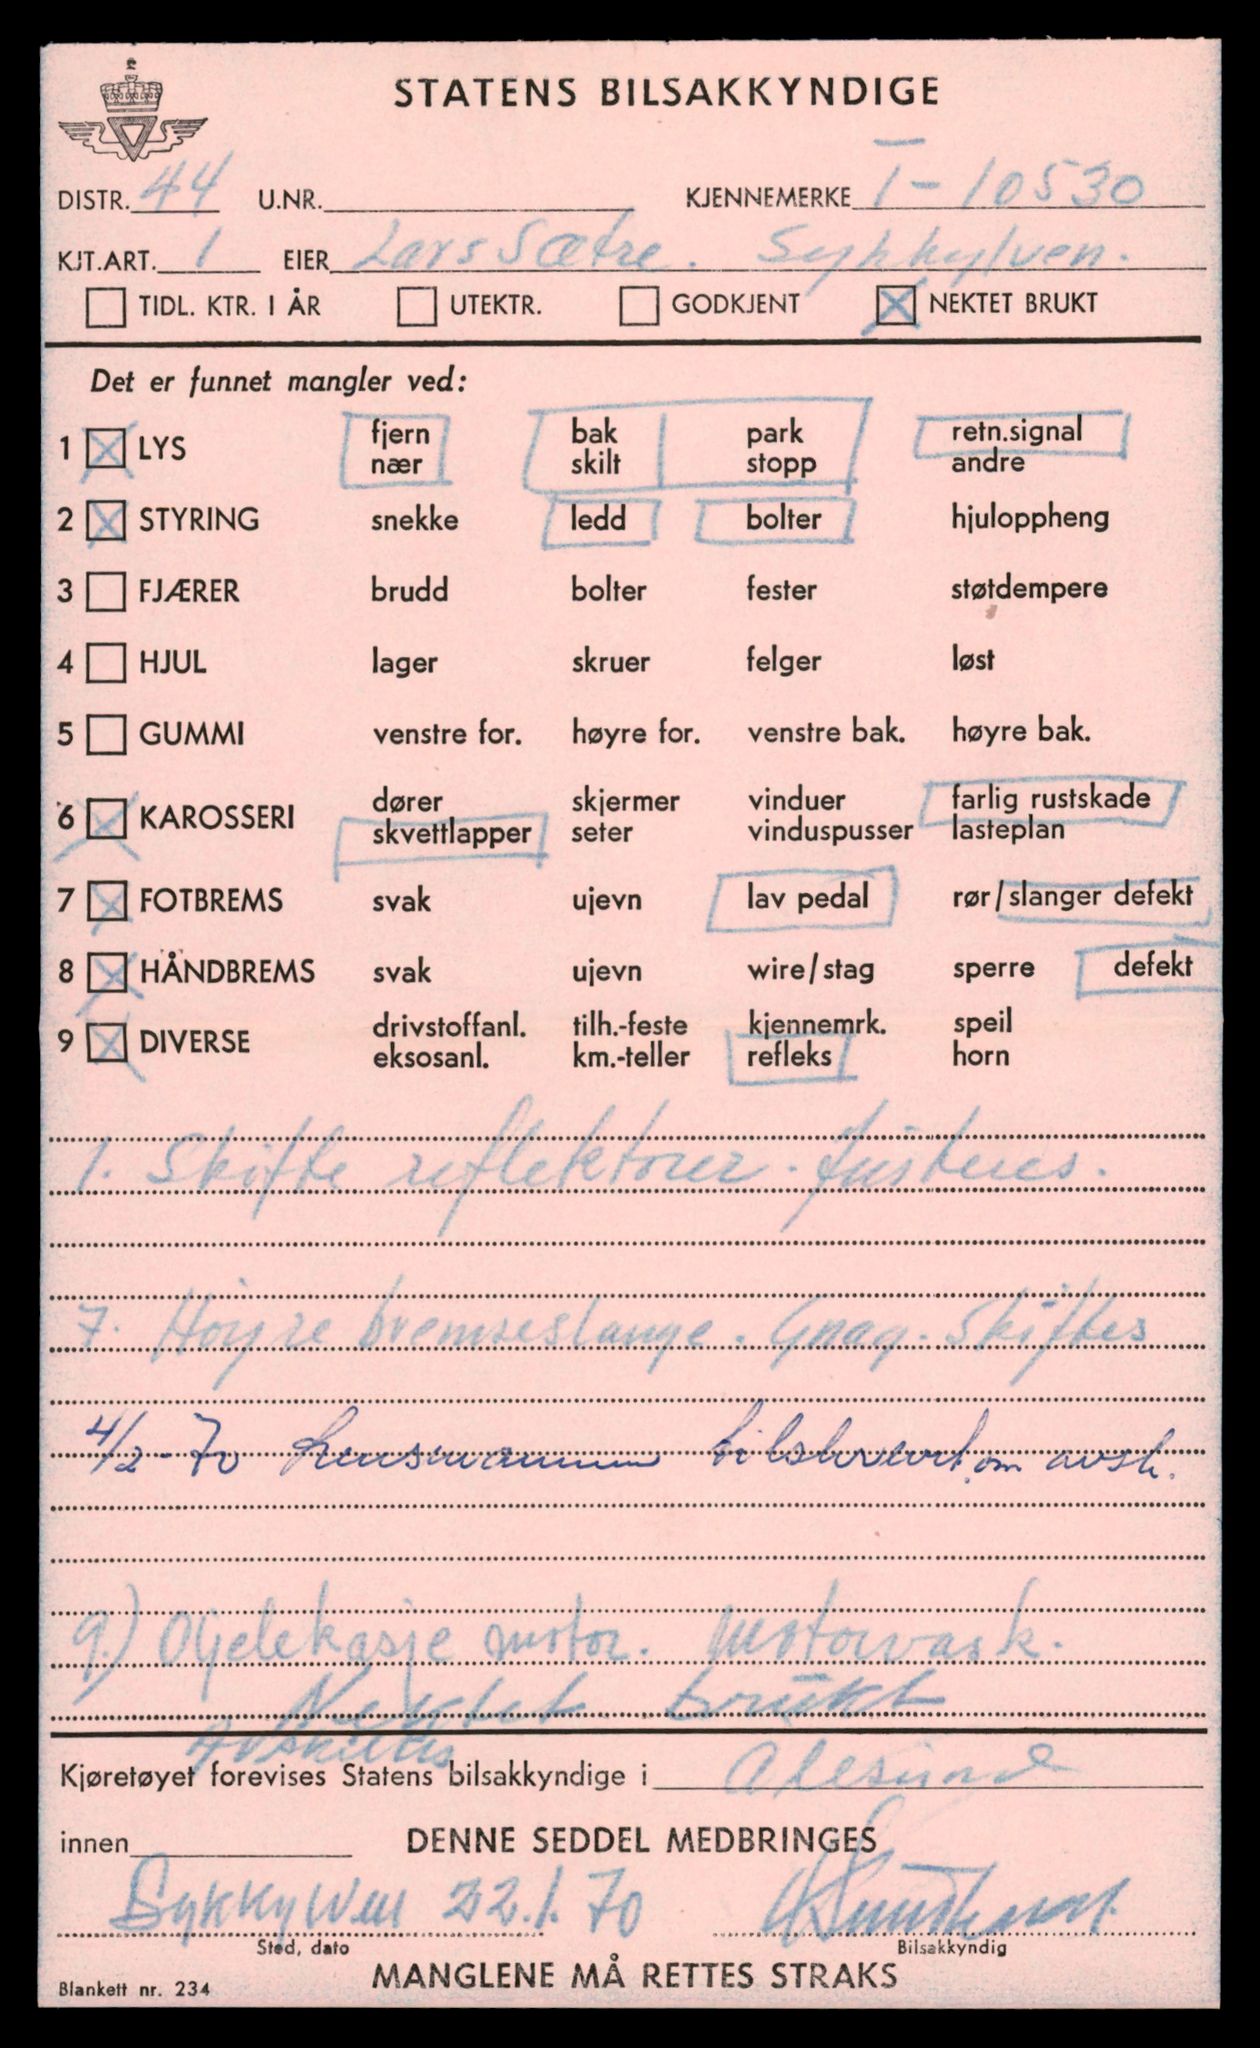 STATENS BILSAKKYNDIGE
DISTR. 44 U.NR. KJENNEMERKE T-10530
KJT.ART. 1 EIER Lars Sætre. Sykkylven.
TIDL. KTR. I ÅR UTEKTR. GODKJENT NEKTET BRUKT
Det er funnet mangler ved:
1 LYS fjern bak park retn.signal
nær skilt stopp andre
2 STYRING snekke ledd bolter hjuloppheng
3 FJÆRER brudd bolter fester støtdempere
4 HJUL lager skruer felger løst
5 GUMMI venstre for. høyre for. venstre bak. høyre bak.
6 KAROSSERI dører skjermer vinduer farlig rustskade
skvettlapper seter vinduspusser lasteplan
7 FOTBREMS svak ujevn lav pedal rør/slanger defekt
8 HÅNDBREMS svak ujevn wire/stag sperre defekt
9 DIVERSE drivstoffanl. tilh.-feste kjennemrk. speil
eksosanl. km.-teller refleks horn
1. Skifte reflektorer. Justeres.
7. Høyre bremseslange. Gnag. Skiftes
4/2-70 Lensmannen tilskrevet om avsk.
9.) Oljelekasje motor. Motorvask.
Nektet brukt
Avskiltes
Kjøretøyet forevises Statens bilsakkyndige i Ålesund
innen DENNE SEDDEL MEDBRINGES
Sykkylven 22.1.70
Sted, dato Bilsakkyndig
Blankett nr. 234 MANGLENE MÅ RETTES STRAKS